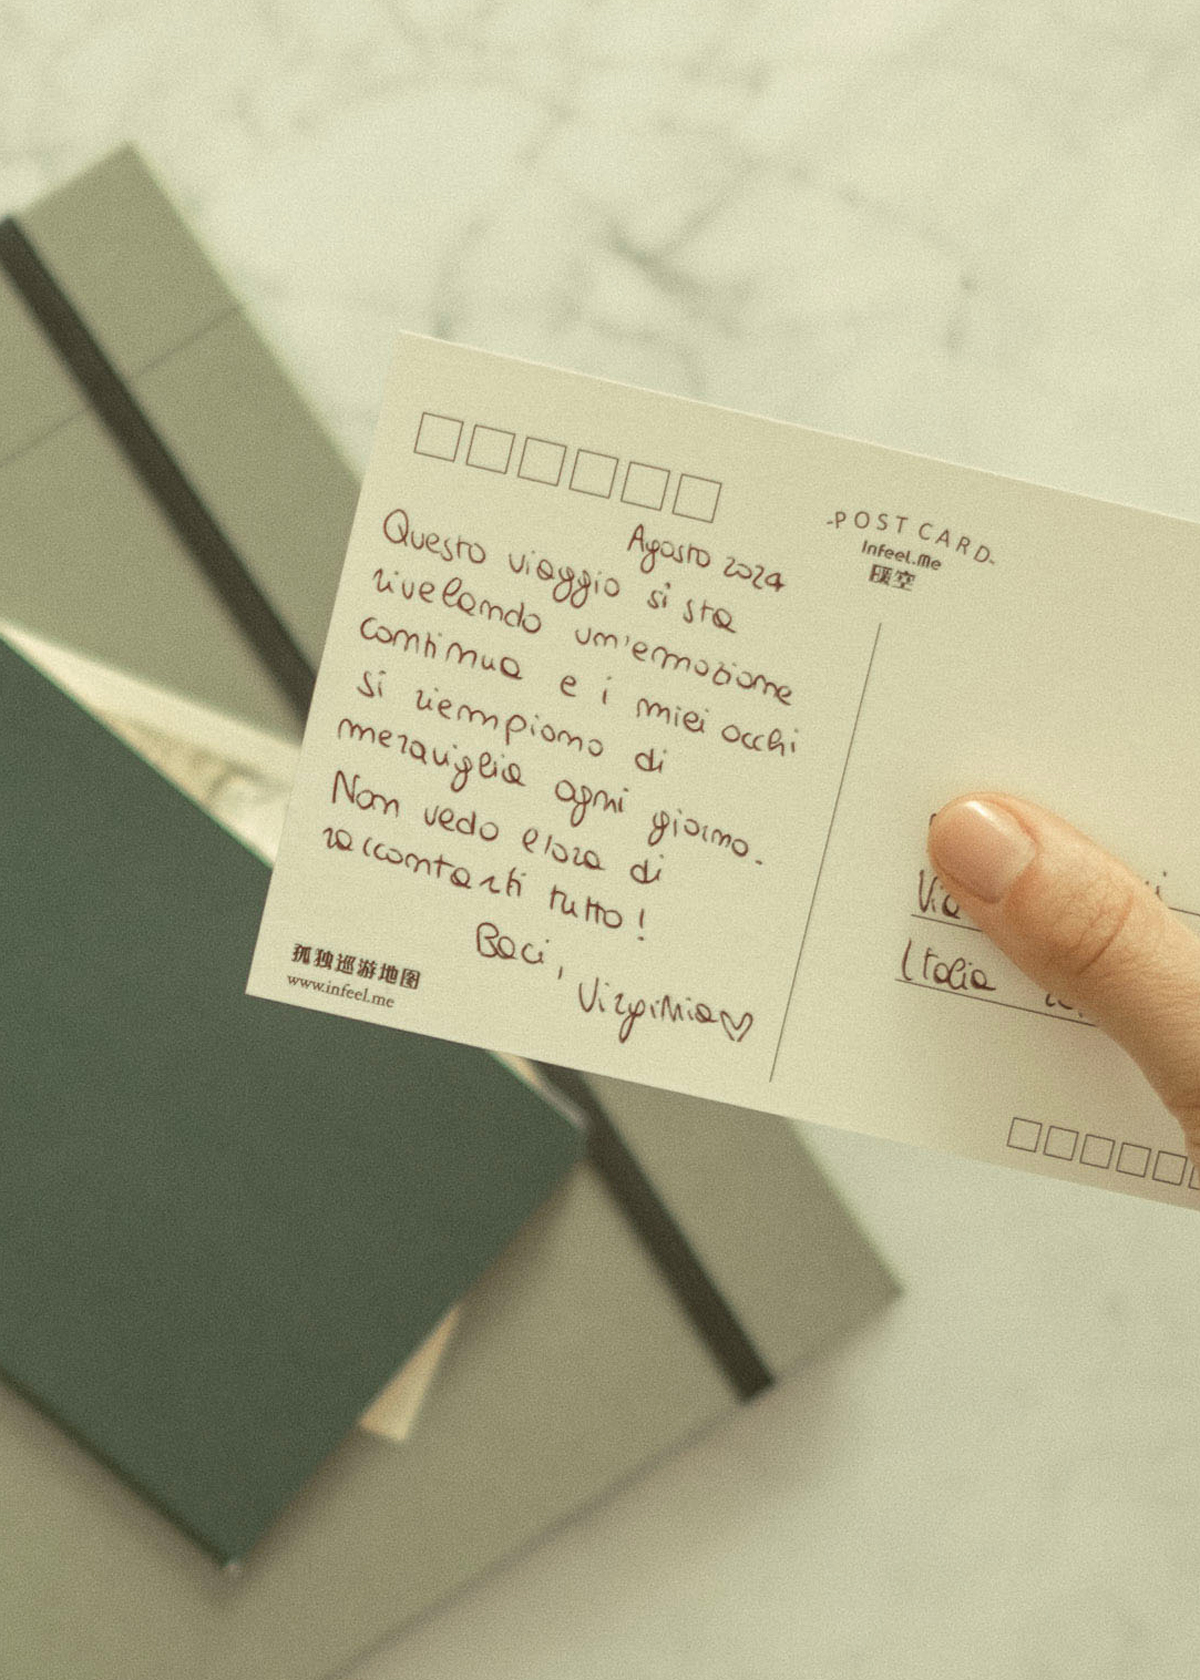 Agosto 2024
Questo viaggio si sta
rivelando un'emozione
continua e i miei occhi
si riempiono di
meraviglia ogni giorno.
Non vedo l'ora di
raccontarti tutto!
Baci,
Virginia♡
孤独巡游地图
www.infeel.me
-POST CARD-
Infeel.Me
Via
Italia